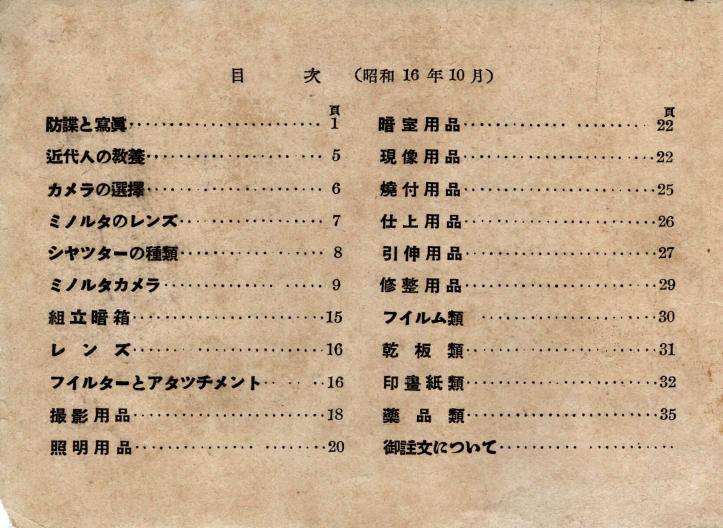 目次 (昭和16年10月)
頁
防諜と寫眞 1
近代人の教養 5
カメラの選擇 6
ミノルタのレンズ 7
シヤツターの種類 8
ミノルタカメラ 9
組立暗箱 15
レンズ 16
フイルターとアタツチメント 16
撮影用品 18
照明用品 20
頁
暗室用品 22
現像用品 22
燒付用品 25
仕上用品 26
引伸用品 27
修整用品 29
フイルム類 30
乾板類 31
印畫紙類 32
藥品類 35
御註文について